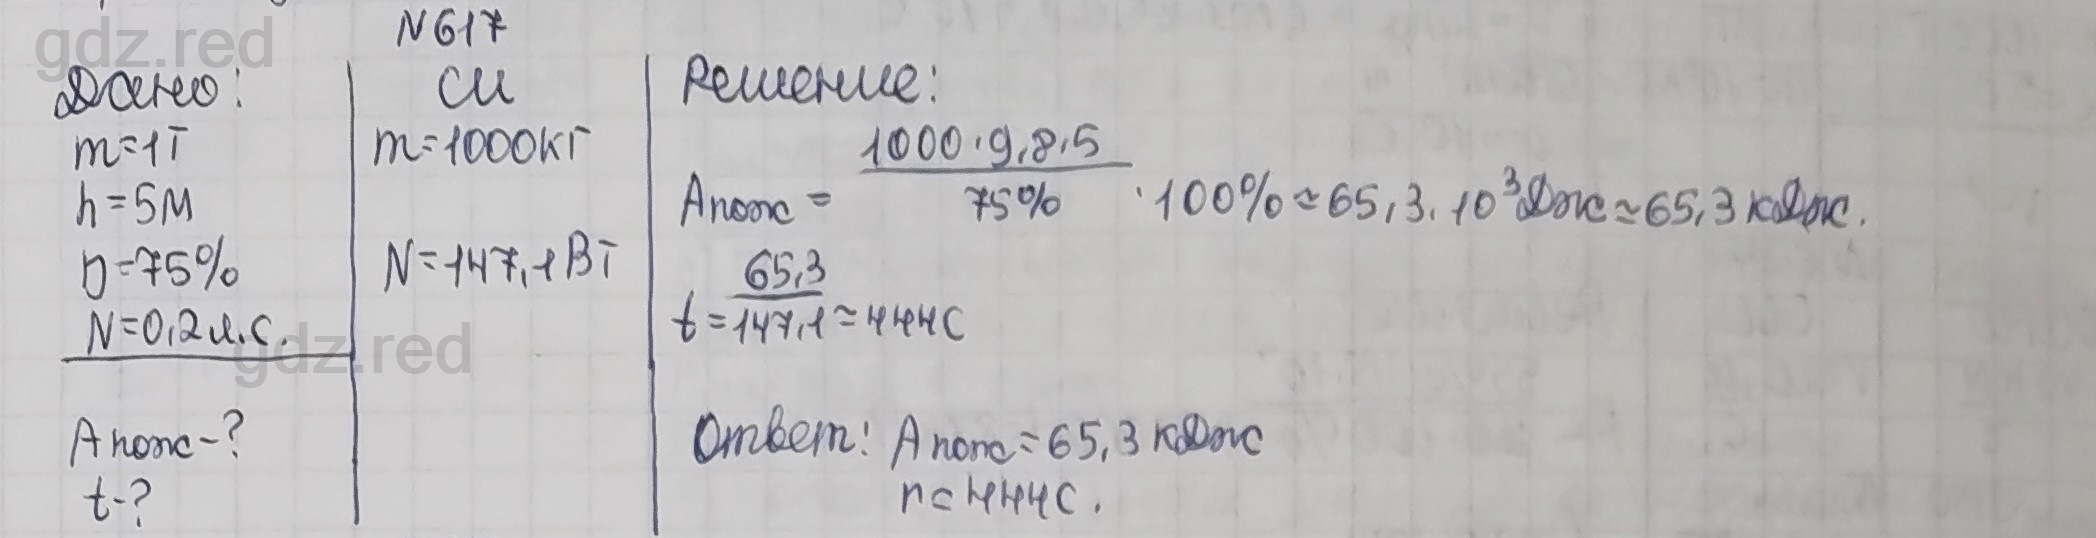 gdz.red
N617
Дано:
m=1т
h=5м
η=75%
N=0,2л.с.
Aполн-?
t-?
СИ
m=1000кг
N=147,1Вт
Решение:
Aполн = 1000·9,8·5 / 75% · 100% ≈ 65,3·10³Дж ≈ 65,3 кДж.
t = 65,3 / 147,1 = 444с
gdz.red
Ответ: Aполн = 65,3 кДж
n = 444с.